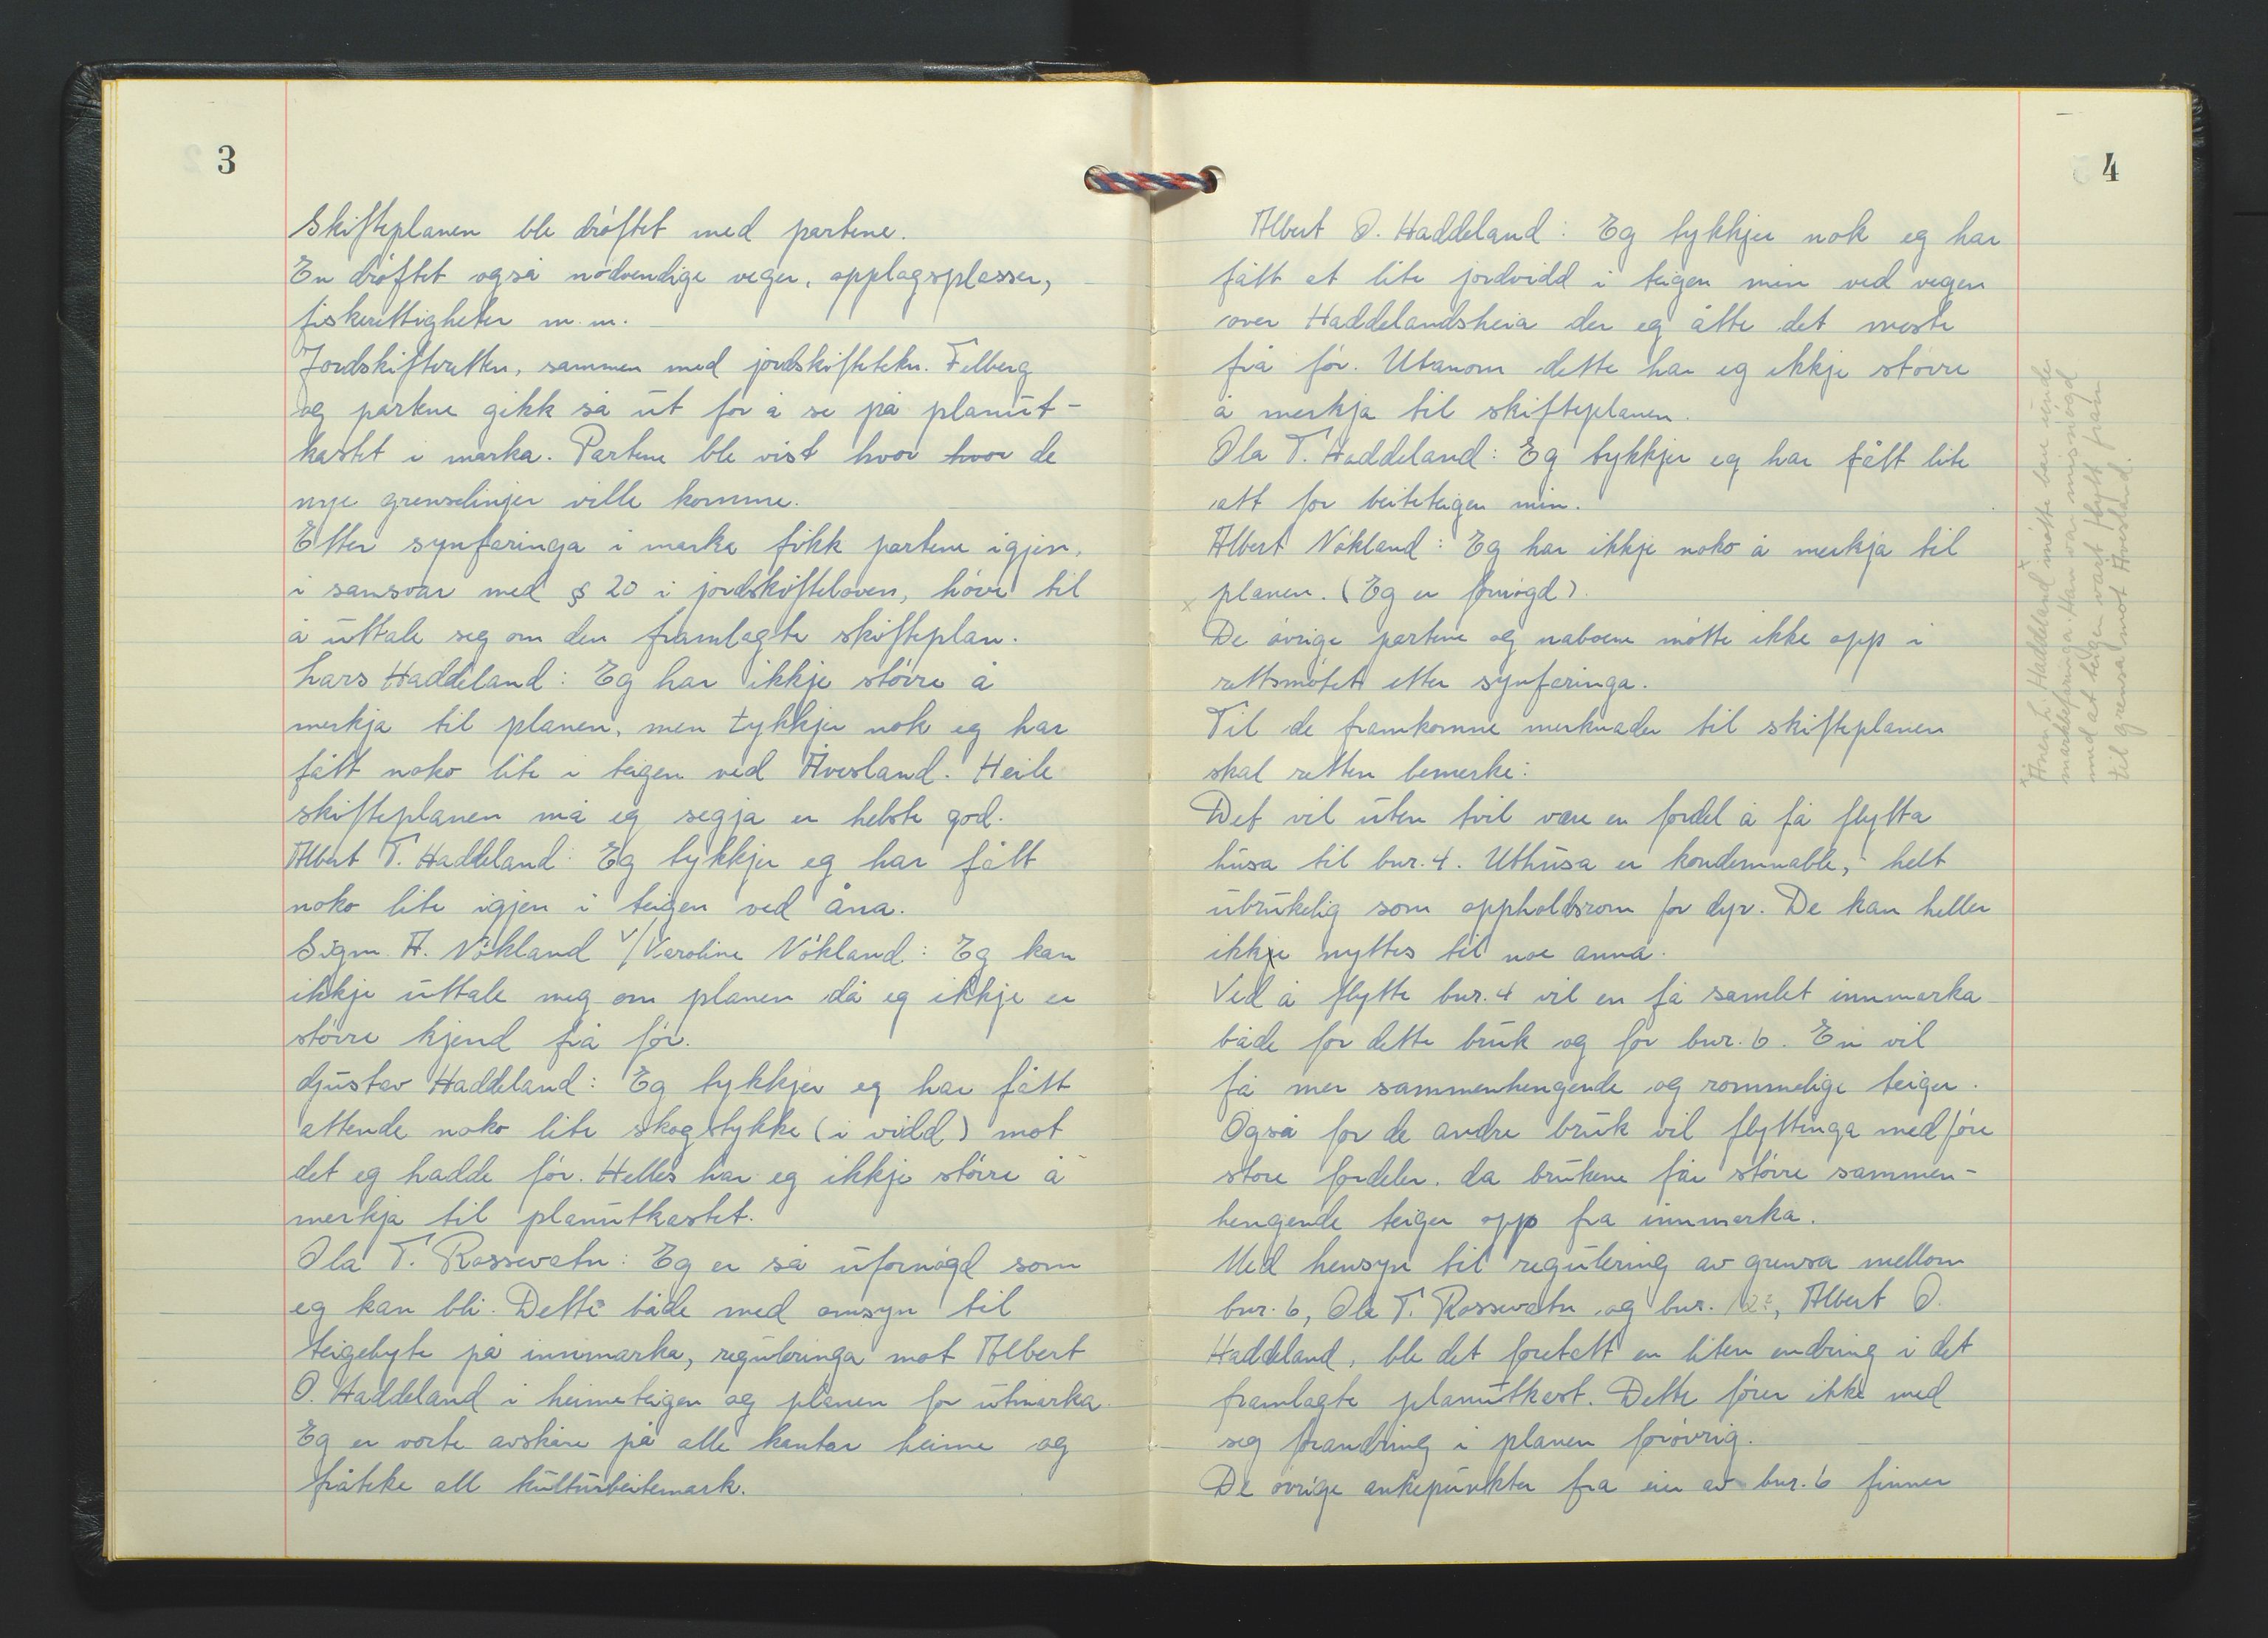 3
Skifteplanen ble drøftet med partene.
En drøftet også nødvendige veger, opplagsplasser,
fiskerettigheter m.m.
Jordskifteretten, sammen med jordskiftetekn. Felberg
og partene gikk så ut for å se på planut-
kastet i marka. Partene ble vist hvor hvor de
nye grenselinjer ville komme.
Etter synfaringa i marka fikk partene igjen,
i samsvar med § 20 i jordskifteloven, høve til
å uttale seg om den framlagte skifteplan.
Lars Haddeland: Eg har ikkje større å
merkja til planen, men tykkjer nok eg har
fått noko lite i teigen ved Åvesland. Heile
skifteplanen må eg segja er helste god.
Albert T. Haddeland: Eg tykkjer eg har fått
noko lite igjen i teigen ved åna.
Sigm. A. Nökland v/Karoline Nökland: Eg kan
ikkje uttale meg om planen då eg ikkje er
større kjend frå før.
Gjustav Haddeland: Eg tykkjer eg har fått
attende noko lite skogstykke (i vidd) mot
det eg hadde før. Helles har eg ikkje större å
merkja til planutkastet.
Ola T. Rossevatn: Eg er så ufornøgd som
eg kan bli. Dette både med omsyn til
teigebyte på innmarka, reguleringa mot Albert
O. Haddeland i heimeteigen og planen for utmarka.
Eg er vorte avskore på alle kantar heime og
fråteke all kulturbeitemark.
4
Albert O. Haddeland: Eg tykkjer nok eg har
fått et lite jordvidd i teigen min ved vegen
over Haddelandsheia der eg åtte det meste
frå før. Utanom dette har eg ikkje større
å merkja til skifteplanen.
Ola T. Haddeland: Eg tykkjer eg har fått lite
att for beiteteigen min.
Albert Nökland: Eg har ikkje noko å merkja til
x planen. (Eg er fornøgd).
De øvrige partene og naboene møtte ikke opp i
rettsmøtet etter synfaringa.
Til de framkomne merknader til skifteplanen
skal retten bemerke:
Det vil uten tvil være en fordel å få flytta
husa til bnr. 4. Uthusa er kondemnable, helt
ubrukelig som oppholdsrom for dyr. De kan heller
ikkje nyttes til noe anna.
Ved å flytte bnr. 4 vil en få samlet innmarka
både for dette bruk og for bnr. 6. En vil
få mer sammenhengende og rommelige teiger.
Også for de andre bruk vil flyttinga medføre
store fordeler, da brukene får større sammen-
hengende teiger opp fra innmarka.
Med hensyn til regulering av grensa mellom
bnr. 6, Ola T. Rossevatn og bnr. 12, Albert O.
Haddeland, ble det foretatt en liten endring i det
framlagte planutkast. Dette fører ikke med
seg forandring i planen forøvrig.
De øvrige ankepunkter fra eier av bnr. 6 finner
x Ånen L. Haddeland møtte bare under
markbefaringa. Han var misnøgd
med at teigen vart flytt fram
til grensa mot Åvesland.